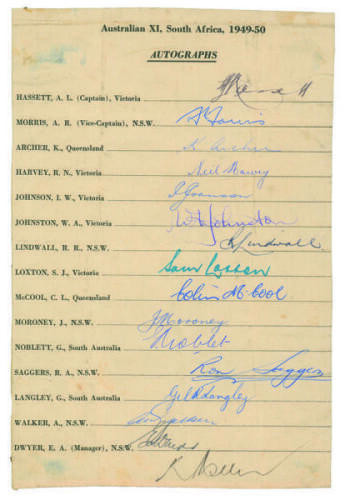 Australian XI, South Africa, 1949-50
AUTOGRAPHS
HASSETT, A. L. (Captain), Victoria
MORRIS, A. R. (Vice-Captain), N.S.W. A Morris
ARCHER, K., Queensland K Archer
HARVEY, R. N., Victoria Neil Harvey
JOHNSON, I. W., Victoria I Johnson
JOHNSTON, W. A., Victoria W A Johnston
LINDWALL, R. R., N.S.W. R Lindwall
LOXTON, S. J., Victoria Sam Loxton
McCOOL, C. L., Queensland Colin McCool
MORONEY, J., N.S.W. J Moroney
NOBLETT, G., South Australia Noblet
SAGGERS, R. A., N.S.W. Ron Saggers
LANGLEY, G., South Australia Gil R Langley
WALKER, A., N.S.W.
DWYER, E. A. (Manager), N.S.W.